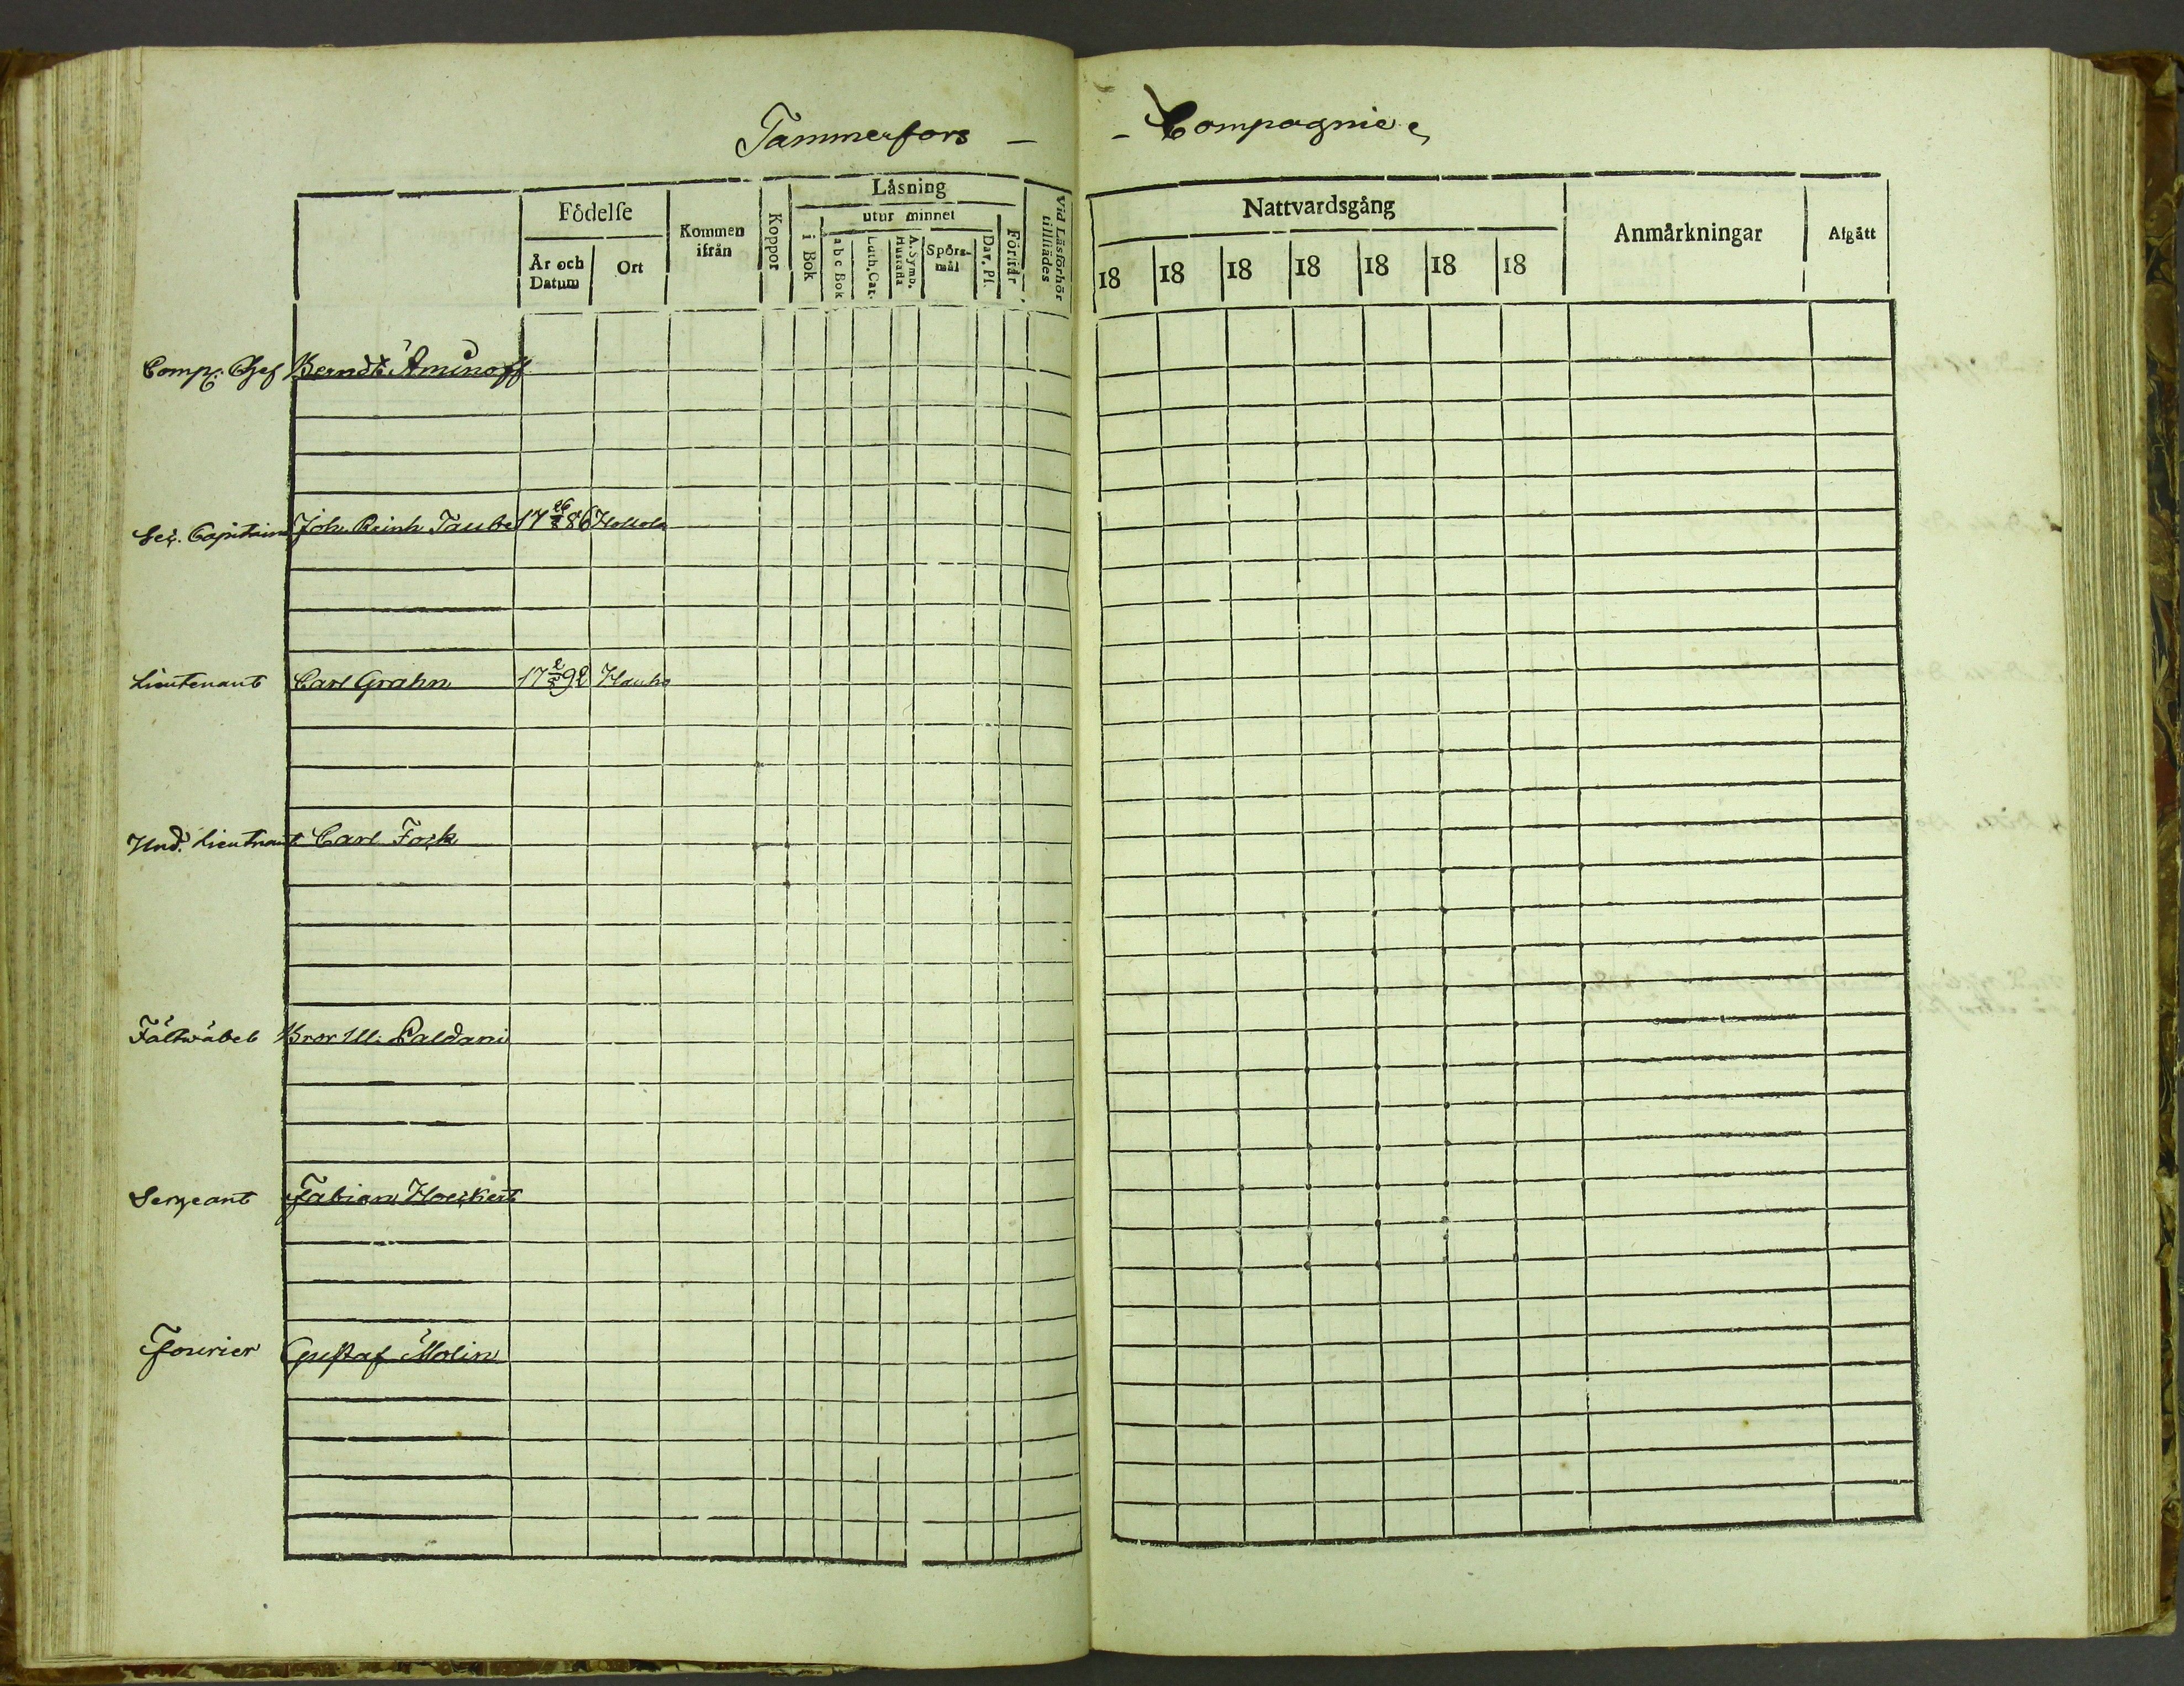 Tammerfors - - Compagnie
Födelse
År och Datum
Ort
Kommen ifrån
Koppor
Läsning
i Bok
utur minnet
a b c Bok
Luth. Cat.
A. Symb. Hustafla
Spörs-mål
Dav. Ps.
Förstår
Vid Läsförhör tillstädes
Nattvardsgång
18 18 18 18 18 18 18
Anmärkningar
Afgått
Comp: Chef Berndt Aminoff
Sec. Capitaine Joh. Reinh Taube 17 26/8 86 Hollola
Lieutenant Carl Grahn 17 2/5 92 Hauho
Und. Lieutnant Carl Fock
Fältwäbel Bror Ul. Paldani
Sergeant Fabian Hoeckert
Fourier Gustaf Molin